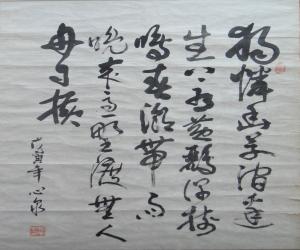 独憐幽草澗邊
生上有黃鸝深樹
鳴春潮帶雨
晚来急野渡無人
舟自橫
戊寅年心泉